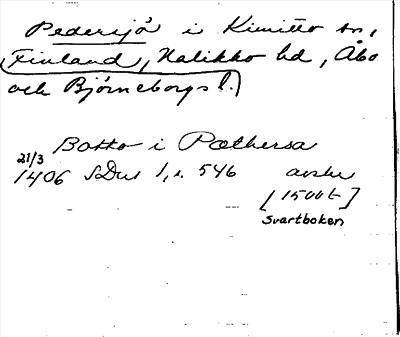 Pedersjö i Kimitto sn,
Finland, Halikko hd, Åbo
och Björneborgs l.
Botto i Pæthersa
21/3
1406 SDns 1, s. 546 avskr
[1500t]
Svartboken